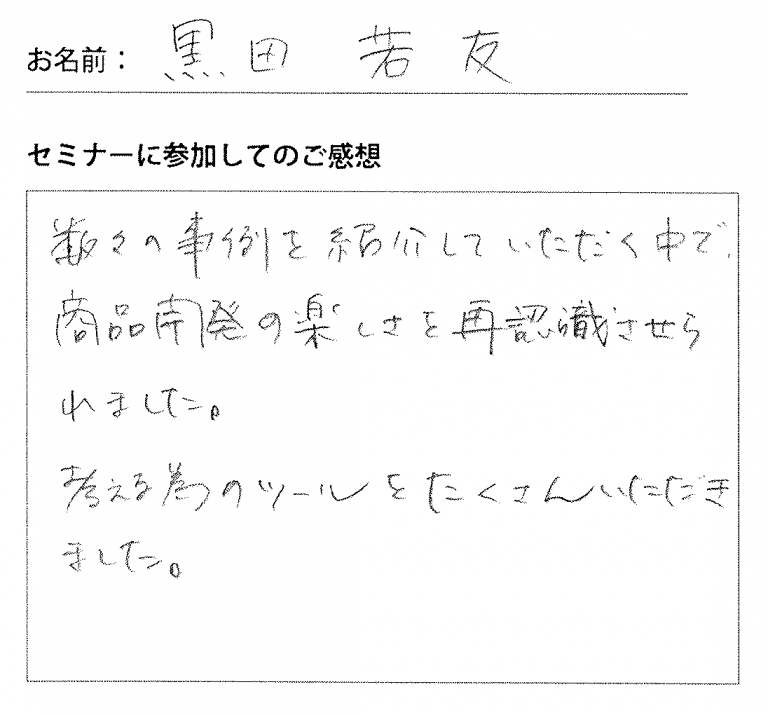 お名前： 黒田 若友
セミナーに参加してのご感想
数々の事例を紹介していただく中で、
商品開発の楽しさを再認識させら
れました。
考える為のツールをたくさんいただき
ました。